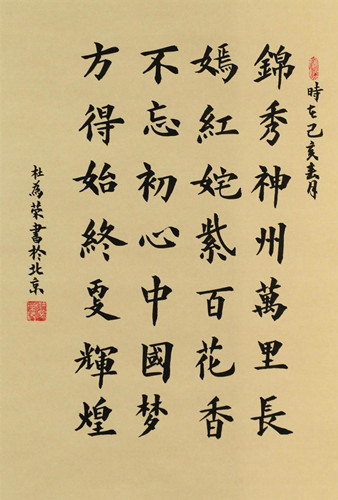 時在己亥春月
錦秀神州萬里長
嫣紅姹紫百花香
不忘初心中國梦
方得始終更輝煌
杜為荣書於北京